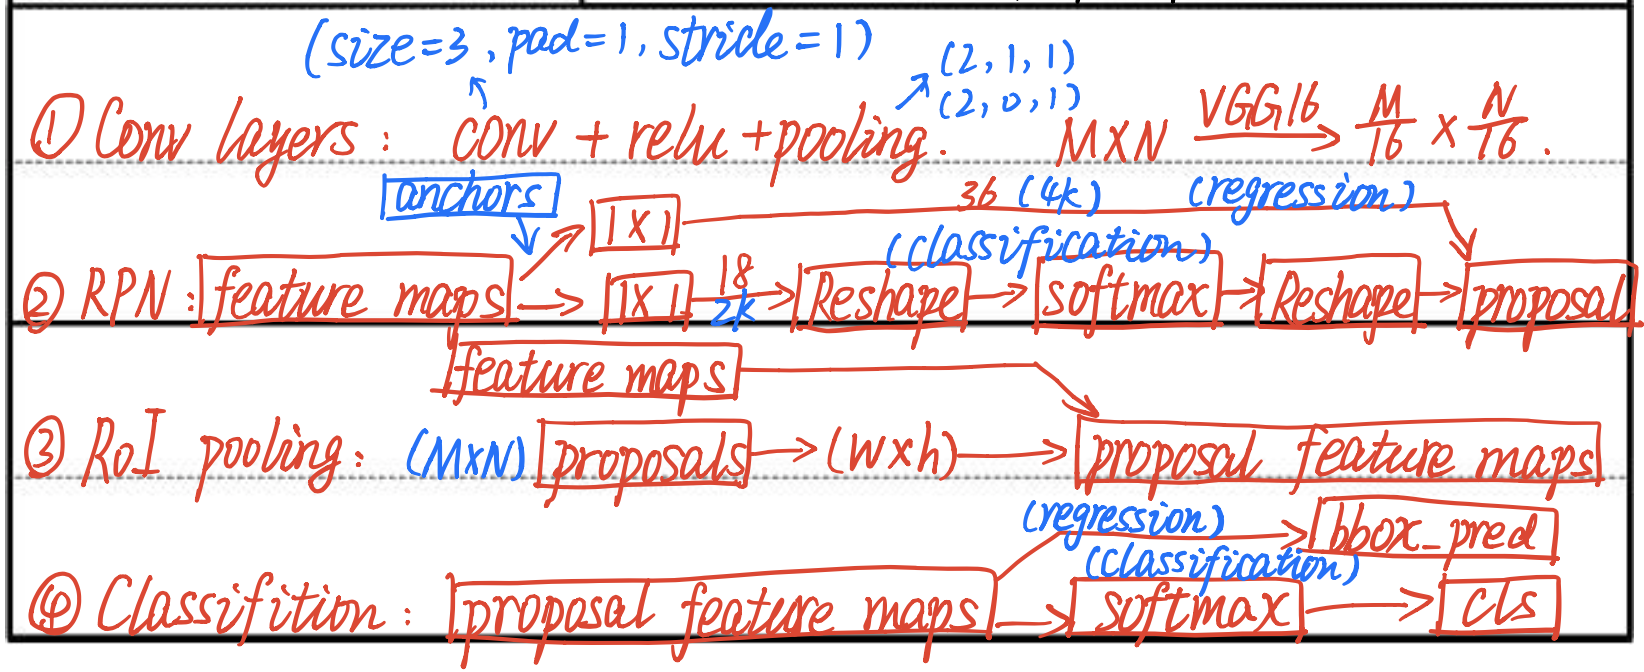 (size=3, pad=1, stride=1)
(2, 1, 1)
(2, 0, 1)
① Conv layers: conv + relu + pooling. M×N VGG16 → M/16 × N/16.
anchors 1×1 36 (4k) (regression)
(classification)
② RPN: feature maps → 1×1 18 2k → Reshape → softmax → Reshape → proposal
feature maps
③ RoI pooling: (M×N) proposals → (w×h) → proposal feature maps
(regression) bbox_pred
(classification)
④ Classifition: proposal feature maps → softmax → cls